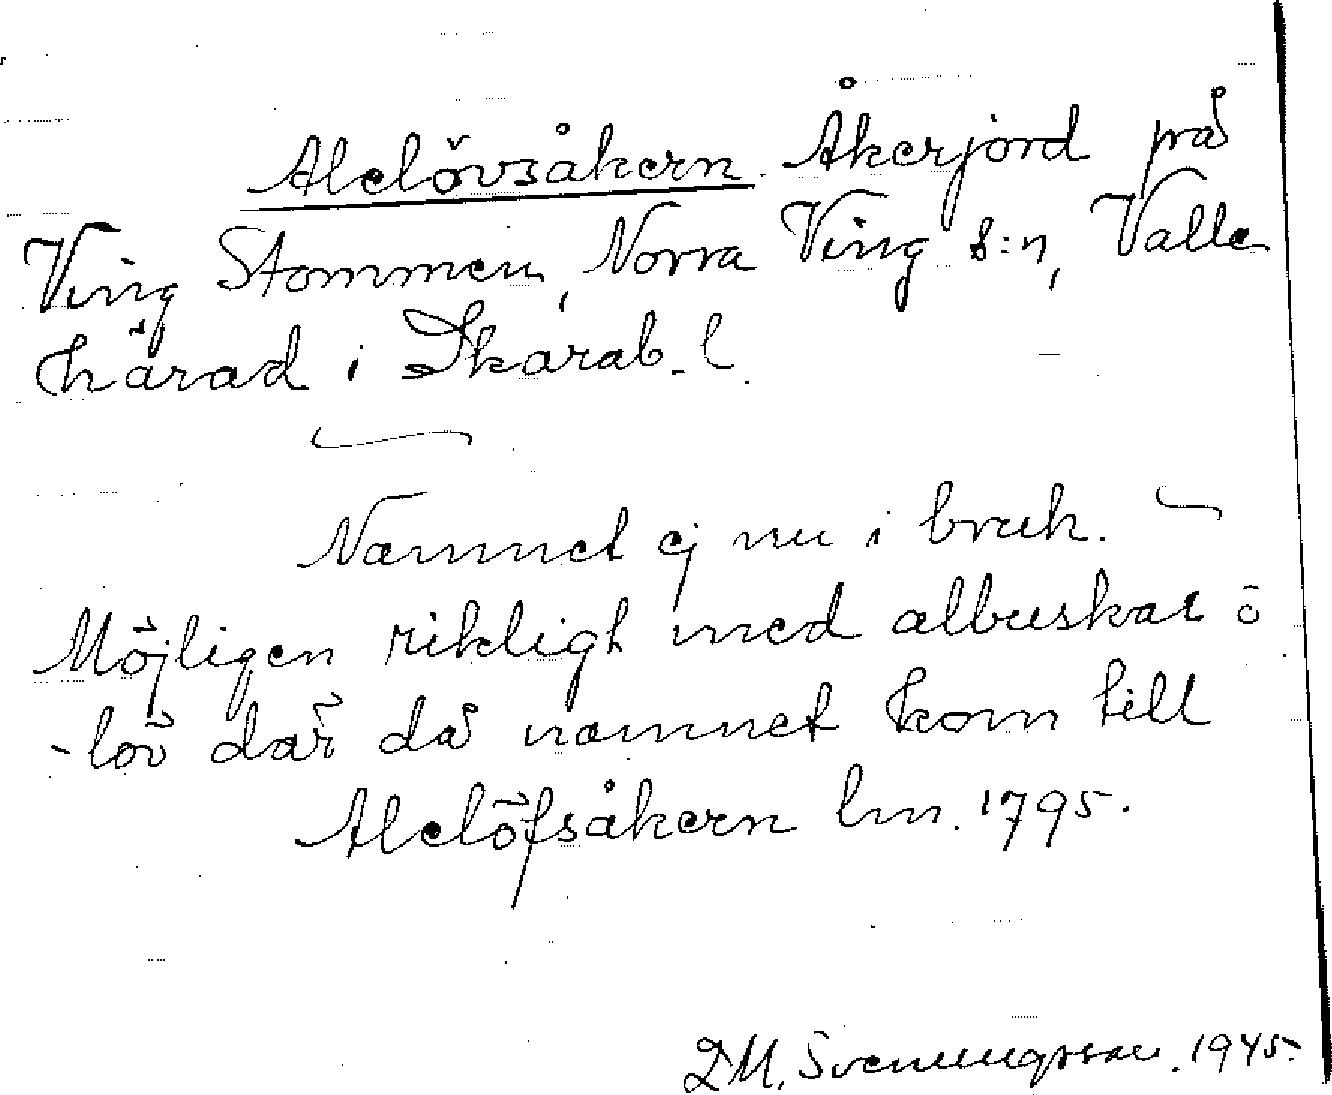 Alelövsåkern. Åkerjord på
Ving Stommen, Norra Ving s:n, Valle
härad i Skarab. l.
Namnet ej nu i bruk. ~
Möjligen rikligt med albuskar o
-löv där då namnet kom till
Alelöfsåkern lm. 1795.
D M. Svenningsson. 1945.